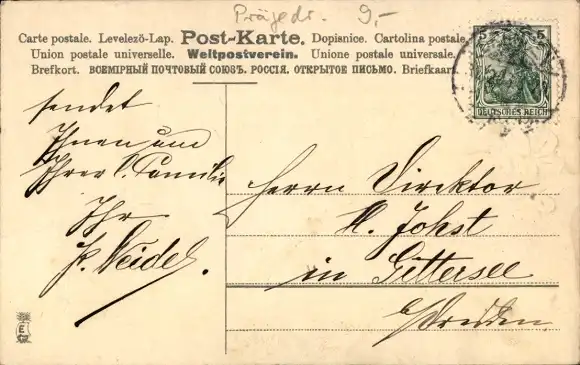 Prägedr. 9,-
Carte postale. Levelező-Lap. Post-Karte. Dopisnice. Cartolina postale
Union postale universelle. Weltpostverein. Unione postale universale.
Brefkort. ВСЕМІРНЫЙ ПОЧТОВЫЙ СОЮЗЪ. РОССІЯ. ОТКРЫТОЕ ПИСЬМО. Briefkaart
5 5
DEUTSCHES REICH
sendet
Ihnen und
Ihrer l. Familie
Ihr
Weidel.
Herrn Direktor
Johst
in Gittersee
b/Dresden
E